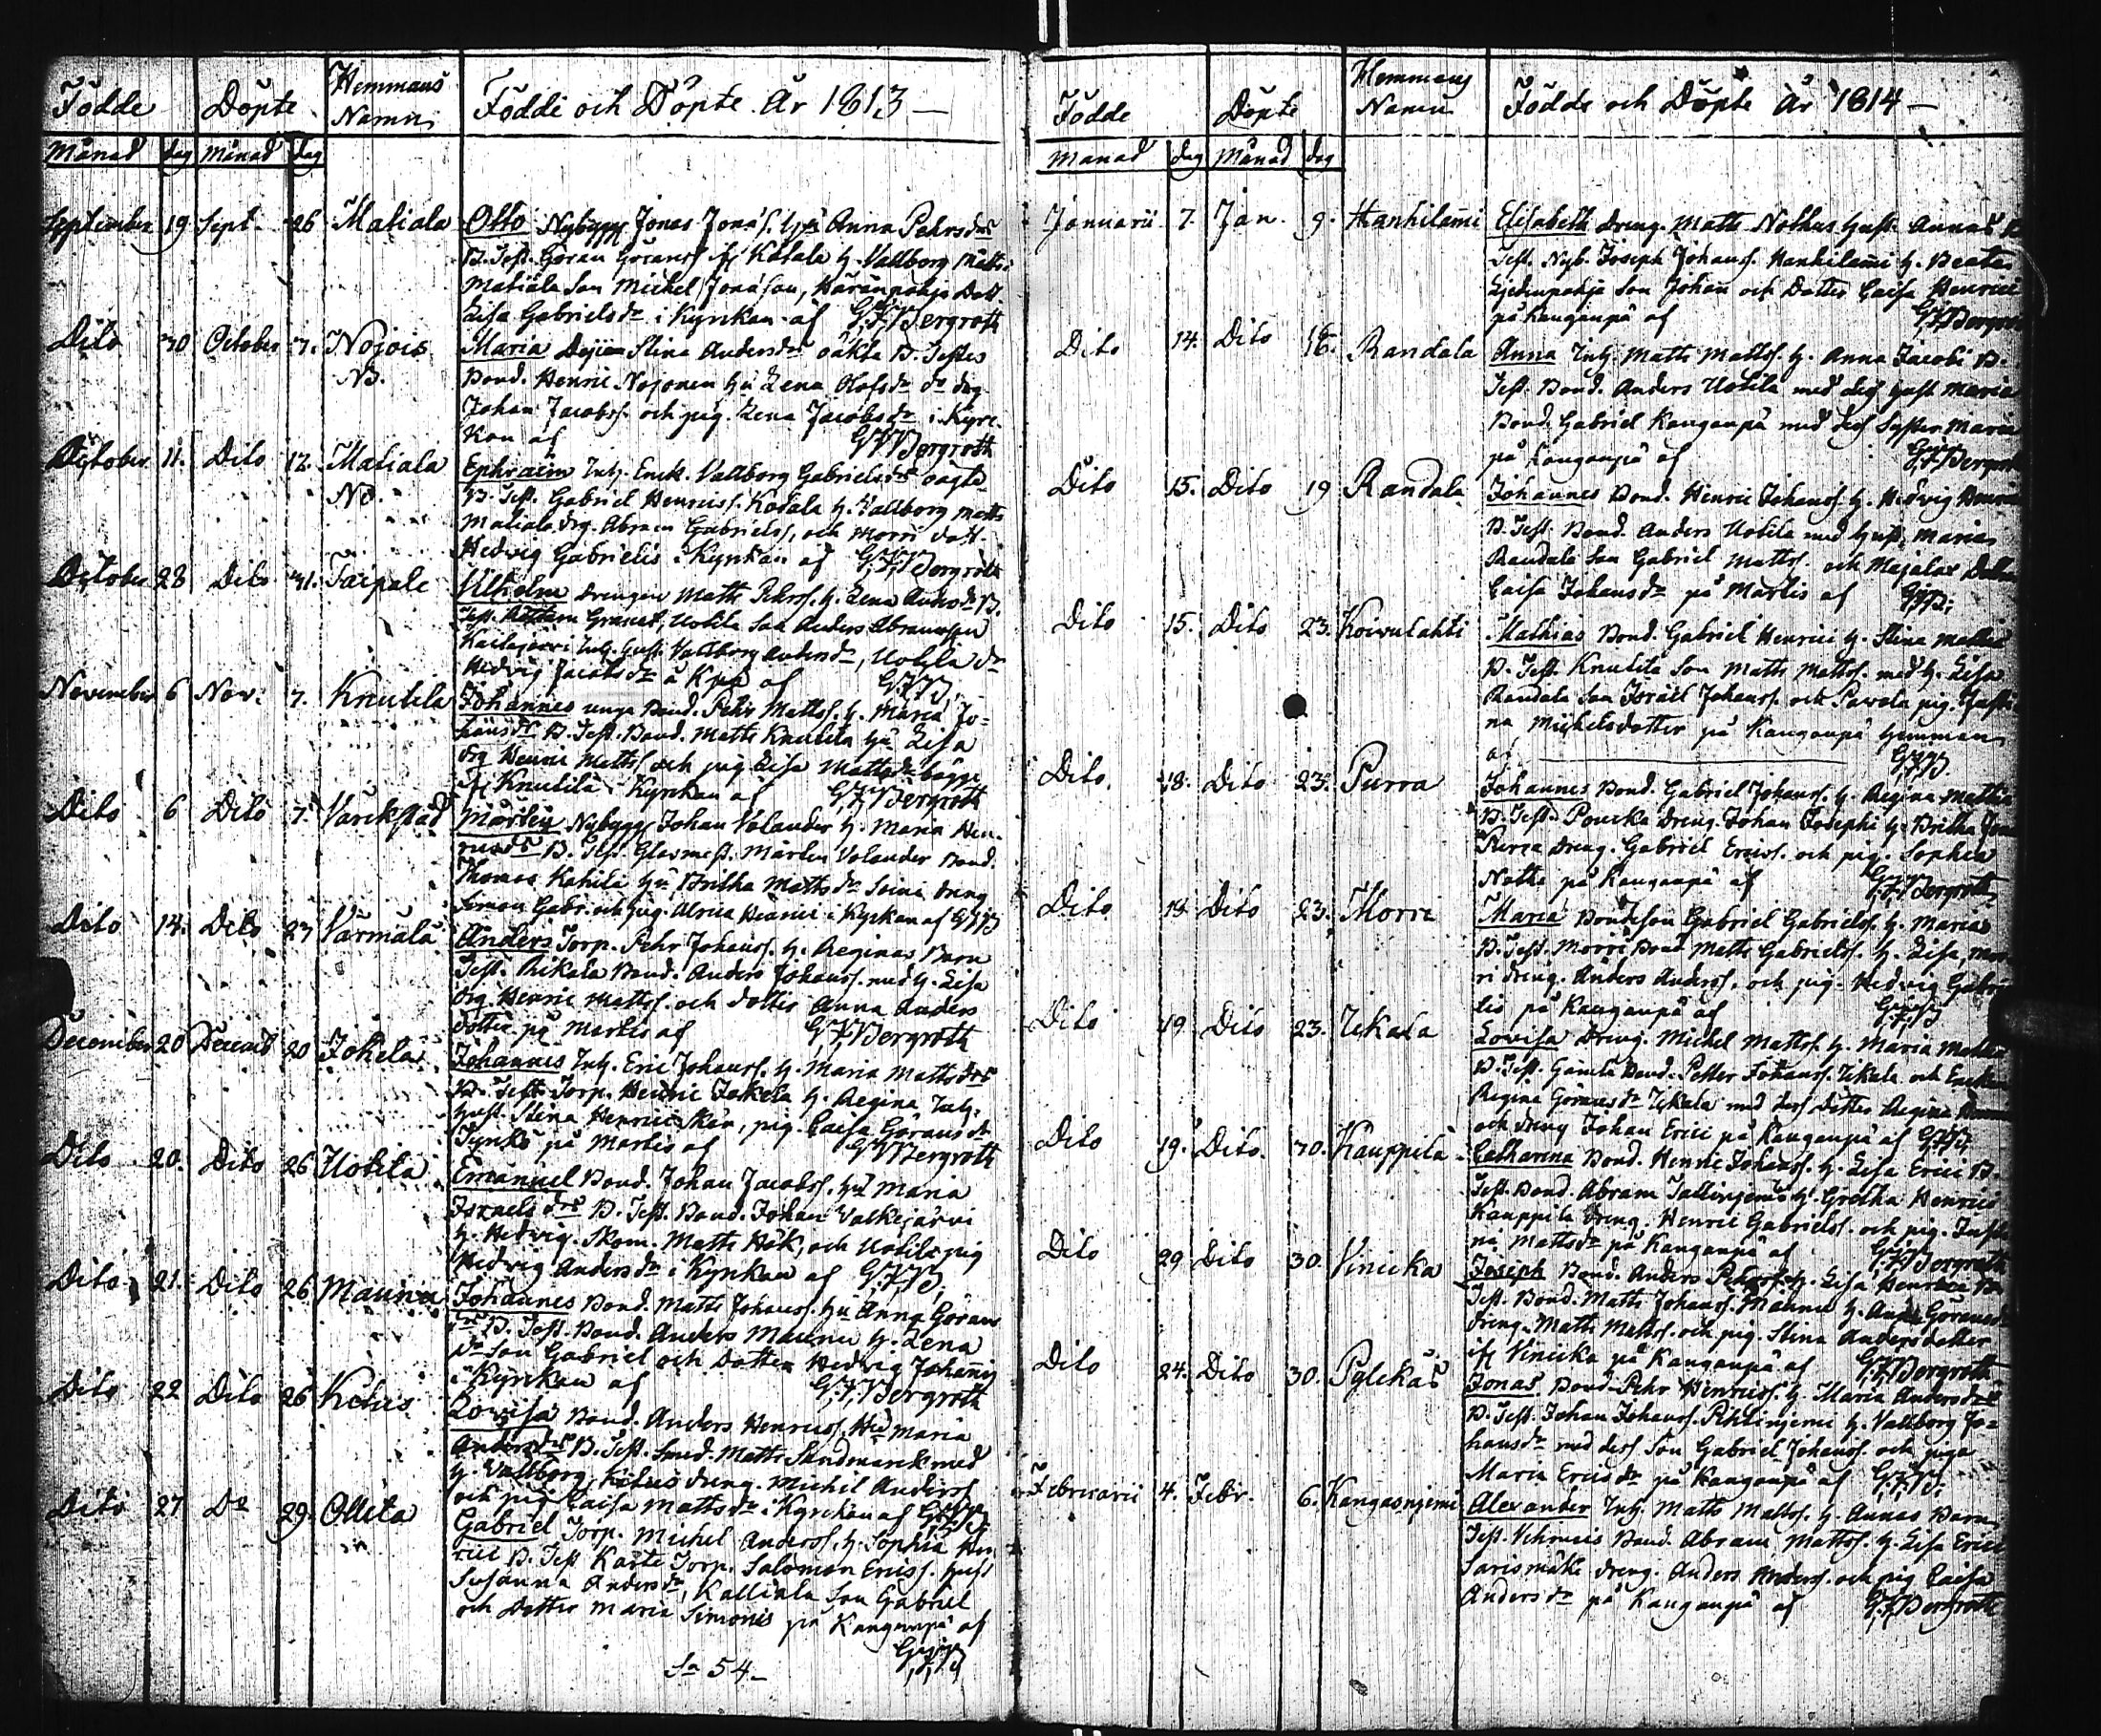 Födde Döpte Hemmans Namn Födde och Döpte År 1813 —
Månad dag Månad dag
September 19 Sept. 26 Matiala Otto Nybygg. Jonas Jonæs. h. Anna Pehrsdrs
B. Test. Göran Göranss. Katala h. Vallborg Matts
Matiala Son Michel Jonæson, Dott.
Lisa Gabrielsdr i Kyrkan af G.F. Bergroth
Dito 30 October 3. Nojois Maria Stina Andersdr oäkta B. Testes
NB. Bond. Henric Nojonen hu Lena Olofsdr dr drg
Johan Jacobs. och pig. Lena Jacobsdr i Kyrc-
kan af G.F. Bergroth
October 11. Dito 12. Matiala Ephraim Inh. Enck. Vallborg Gabrielsdrs oägta
NB. B. Test. Gabriel Henricss. Kodala h. Vallborg Matts
Matiala drg. Abram Gabrielss, och Morri dott.
Hedvig Gabrielis i Kyrkan af G.F. Bergroth
October 28 Dito 31. Taipale Vilhelm drengen Matts Pehrss. h. Lena Andersdr B.
Test. Granat, Uotila Son Anders Abramsson
Inh. hust. Vallborg Andersdr, Uotila dr
Hedvig Jacobsdr å Kpä af G.F.B.
November 6 Nov. 7. Knutila Johannes unga Bond. Pehr Mattss. h. Maria Jo=
hansdrs B. Test. Bond. Matts Knutila hu Lisa
drg Henric Mattss och pig Lisa Mattsdr bägge
ifr Knutila i Kyrkan af G.F. Bergroth
Dito 6 Dito 7. Mårten Nybygg. Johan Volander h. Maria Hen-
ricsdrs B. Test. Glasmest. Mårten Volander Bond.
Thomas Katila hu Britha Mattsdr Soini dreng
Simon Gabr. och pig. Ulrica Henrici i Kyrkan af GFB
Dito 14. Dito 23 Värmälä Anders Torp. Pehr Johanss. h. Reginas Barn
Test. Rikala Bond. Anders Johanss. med h. Lisa
drg. Henric Mattss. och dotter Anna Anders
dotter på Martis af G.F. Bergroth
December 20 Decemb 20 Jokela Johannes Inh. Eric Johanss. h. Maria Mattsdrs
B. Test. Torp. Henric Jokela h. Regina Inh.
hust. Stina Henrici Skär, pig. Caisa Göransdr
på Martis af G.F. Bergroth
Dito 20. Dito 26 Uotila Emanuel Bond. Johan Jacobss. hu Maria
Israelsdrs B. Test. Bond. Johan Valkejärvi
h. Hedvig. Skom. Matts Hök, och Uotila pig
Hedvig Andersdr i Kyrkan af G.F.B.
Dito 21. Dito 26 Maunu Johannes Bond. Matts Johanss. hu Anna Görans
drs B. Test. Bond. Anders Maunu h. Lena
dr Son Gabriel och Dotter Hedvig Johannis
i Kyrkan af G.F. Bergroth
Dito 22 Dito 26 Ketus Lovisa Bond. Anders Henricss. Hu Maria
Andersdrs B. Test. Smed. Matts Sandmarck med
h. Vallborg, Ketus dreng. Michel Anderss
och pig Caisa Mattsdr i Kyrckan af G.F.B.
Dito 27 Do 29. Ollila Gabriel Torp. Michel Anderss. h. Sophia Hen-
rici B. Test Torp. Salomon Ericss. hust
Susanna Andersdr, Kalliala Son Gabriel
och Dotter Maria Simonis på Kangaanpä af
G.F.B.
Sa 54.—
Födde Döpte Hemmans Namn Födde och Döpte År 1814 —
Månad dag Månad dag
Januarii 7. Jan. 9. Hanhilami Elisabeth dreng. Matts Nothus hust. Annas
Test. Nyb. Joseph Johanss. Hanhilami h. Beata
Son Johan och Dotter Caisa Henrici
på Kangaupä af G.F. Bergroth
Dito 14. Dito 16. Randala Anna Inh. Matts Mattss. h. Anna Jacobi B.
Test. Bond. Anders Uotila med dess hust Maria
Bond. Gabriel Kangaupä med dess Syster Maria
på Kangaupä af G.F. Bergroth
Dito 15. Dito 19 Randala Johannes Bond. Henric Johanss. h. Hedvig
B. Test. Bond. Anders Uotila med hust. Maria
Randala Son Gabriel Mattss. och Majalax
Caisa Johansdr på Martis af GFB.
Dito 15. Dito 23. Koivulahti Mathias Bond. Gabriel Henrici h. Stina
B. Test. Knutila Son Matts Mattss. med h. Lisa
Randala Son Israel Johanss. och Pavola pig. Justi
na Michelsdotter på Kangaupä hemman
af G.F.B.
Dito. 18. Dito 23. Purra Johannes Bond. Gabriel Johanss. h. Regina
B. Test. dreng. Johan Josephi h. Britha
Purra dreng. Gabriel Ericss. och pig. Sophia
på Kangaupä af G.F. Bergroth
Dito 18 Dito 23. Morri Maria Bondeson Gabriel Gabrielss. h. Marias
B. Test. Morri Bond Matts Gabrielss. h. Lisa, Mor
ri dreng. Anders Anderss. och pig. Hedvig Gabri
lis på Kangaupä af G.F.B
Dito 19. Dito 23. Ukala Lovisa Dreng. Michel Mattss. h. Maria
B. Test. Gamla Bond. Petter Johanss. Ukala och
Regina Göransdr Ukala med dess Dotter Regina
och dreng Johan Erici på Kangaupä af G.F.B.
Dito 19. Dito. 30. Kauppila Catharina Bond. Henric Johanss. h. Lisa Erici B.
Test. Bond. Abram h. Gretha Henrici
Kauppila dreng. Henric Gabrielss. och pig. Justi
na Mattsdr på Kangaupä af G.F. Bergroth
Dito 29 Dito 30. Vinicka Joseph Bond. Anders Pehrss. h. Lisa
Test. Bond. Matts Johanss. Maunu h. Anna Göransdr
dreng. Matts Mattss. och pig. Stina Andersdotter
ifr Vinicka på Kangaupä af G.F. Bergroth
Dito 24. Dito 30. Pylckäs Jonas Bond. Pehr Henricss. h. Maria Andersdrs
B. Test. Johan Johanss. h. Vallborg Jo=
hansdr med dess Son Gabriel Johanss. och piga
Maria Ericsdr på Kangaupä af G.F.B.
Februarii 4. Febr. 6. Kangasnjemi Alexander Inh. Matts Mattss. h. Annas Barn
Test. Bond. Abram Mattss. h. Lisa Erici
Sarismäke dreng. Anders Anderss. och pig Caisa
Andersdr på Kangaupä af G.F. Bergroth